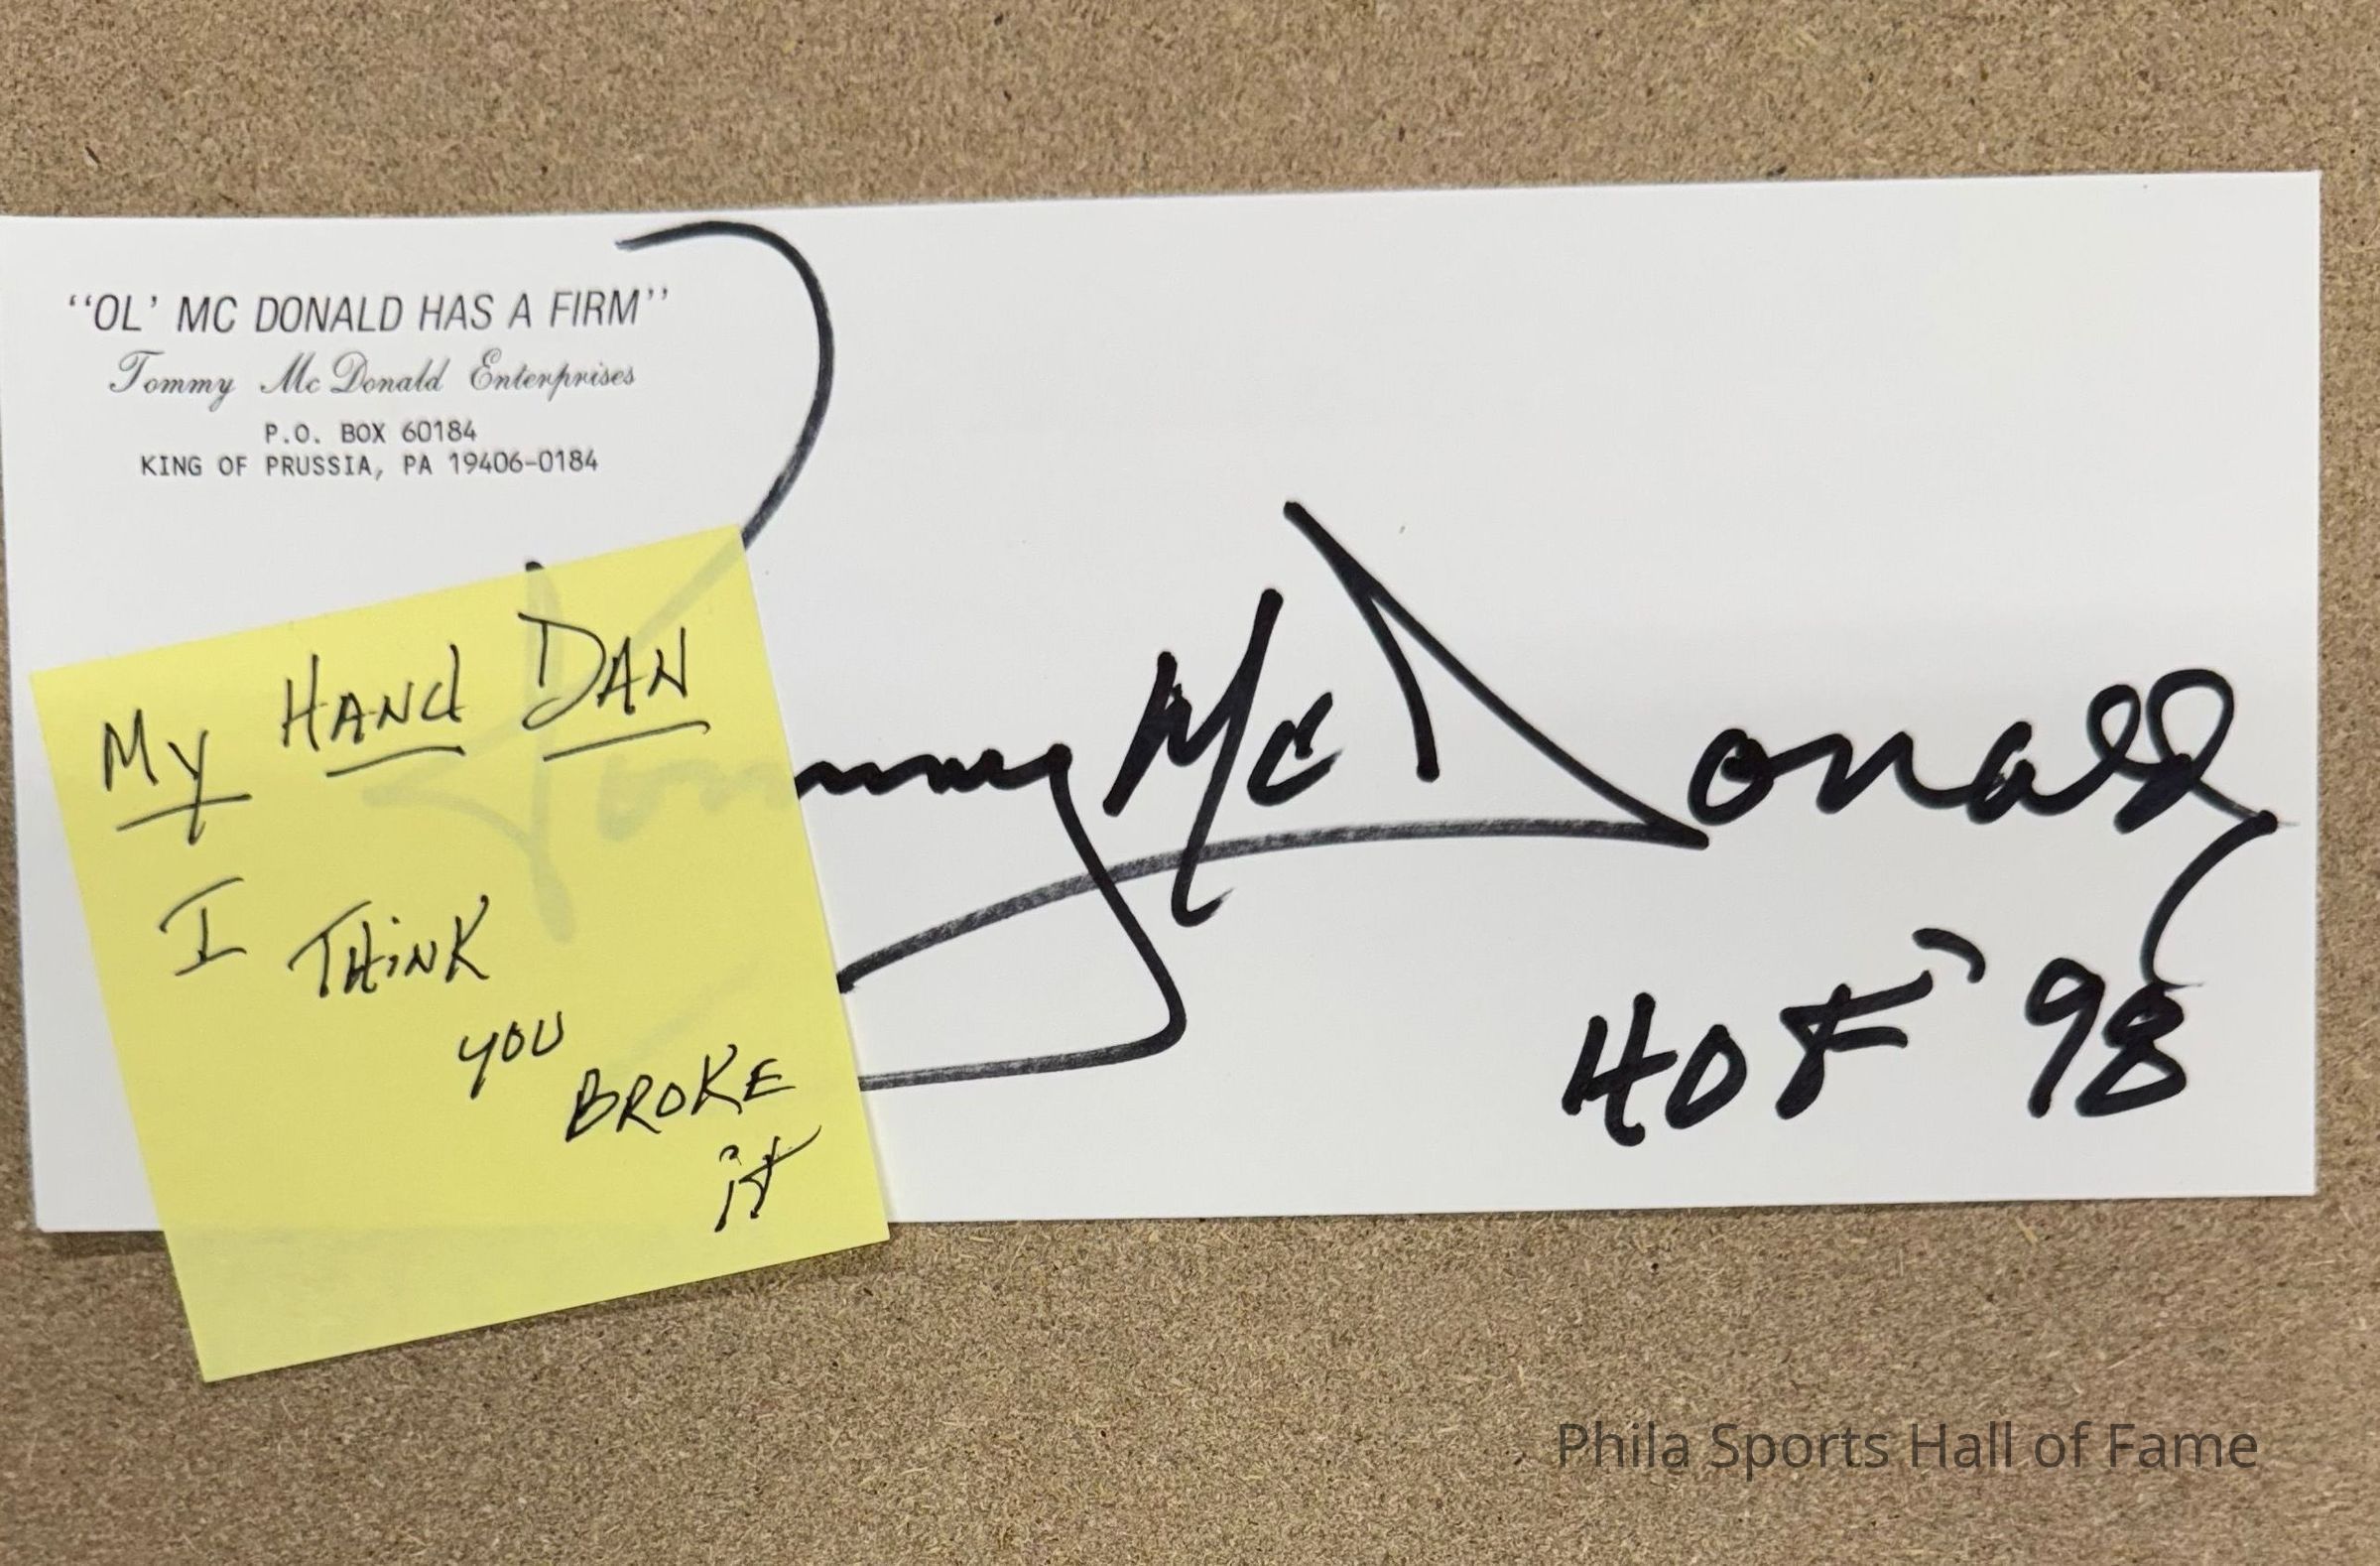 "OL' MC DONALD HAS A FIRM"
Tommy McDonald Enterprises
P.O. BOX 60184
KING OF PRUSSIA, PA 19406-0184
My HANd DAN
I THiNK
you
BROKE
it
Tommy McDonald
HOF '98
Phila Sports Hall of Fame